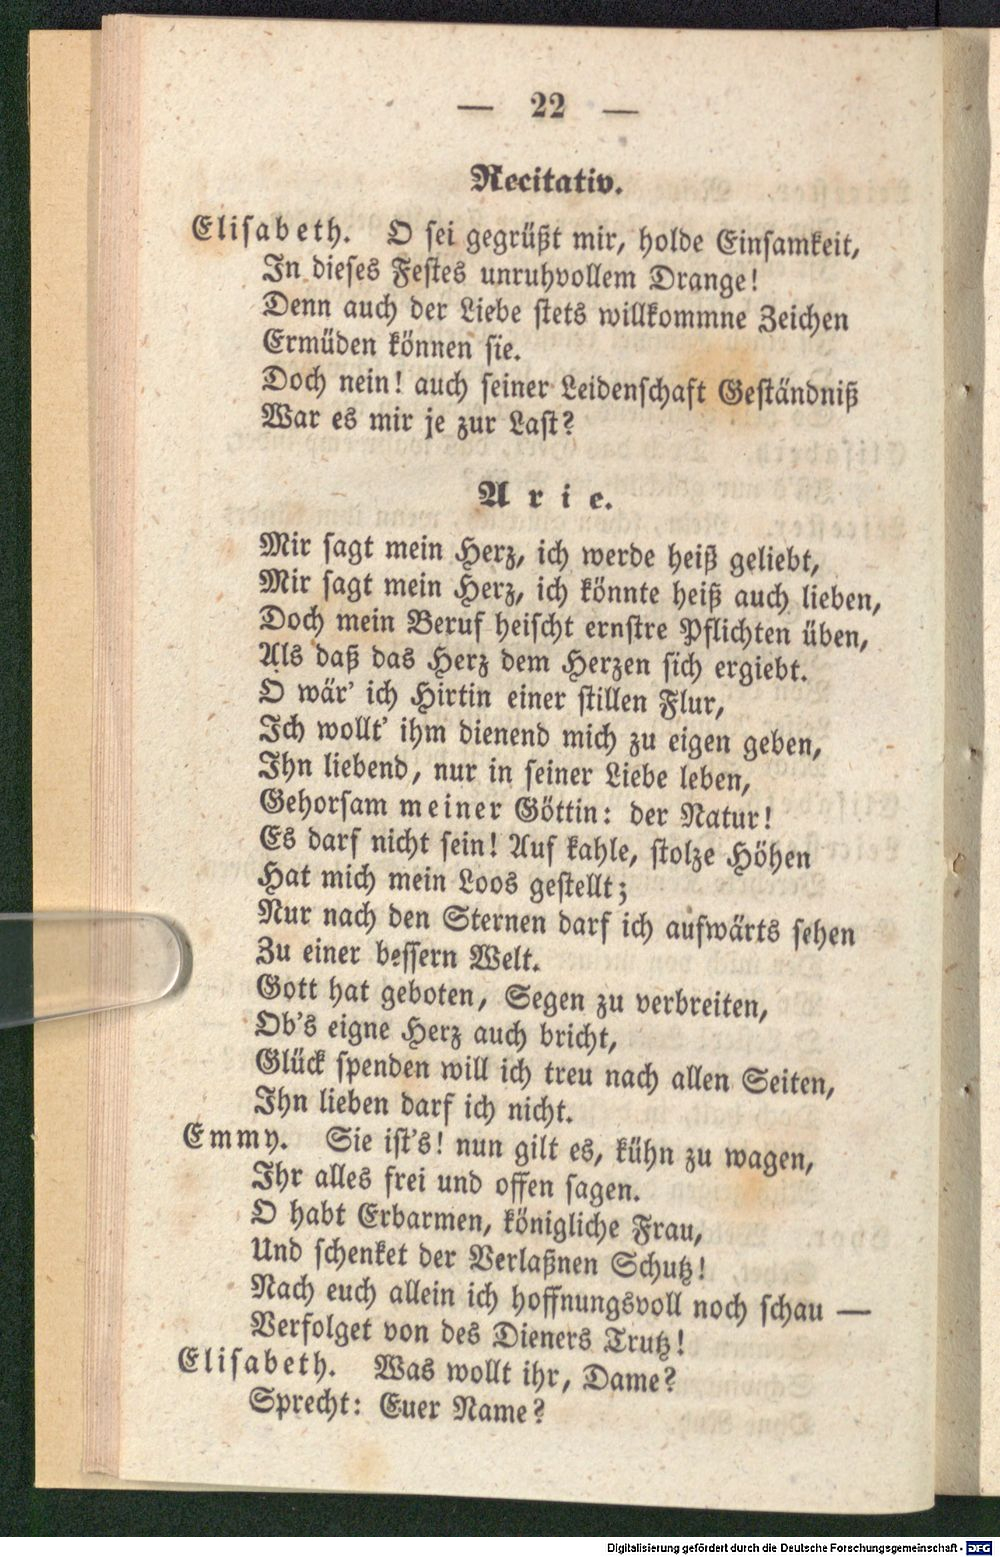 — 22 —
Recitativ.
Elisabeth. O sei gegrüßt mir, holde Einsamkeit,
In dieses Festes unruhvollem Drange!
Denn auch der Liebe stets willkommne Zeichen
Ermüden können sie.
Doch nein! auch seiner Leidenschaft Geständniß
War es mir je zur Last?
Arie.
Mir sagt mein Herz, ich werde heiß geliebt,
Mir sagt mein Herz, ich könnte heiß auch lieben,
Doch mein Beruf heischt ernstre Pflichten üben,
Als daß das Herz dem Herzen sich ergiebt.
O wär' ich Hirtin einer stillen Flur,
Ich wollt' ihm dienend mich zu eigen geben,
Ihn liebend, nur in seiner Liebe leben,
Gehorsam meiner Göttin: der Natur!
Es darf nicht sein! Auf kahle, stolze Höhen
Hat mich mein Loos gestellt;
Nur nach den Sternen darf ich aufwärts sehen
Zu einer bessern Welt.
Gott hat geboten, Segen zu verbreiten,
Ob's eigne Herz auch bricht,
Glück spenden will ich treu nach allen Seiten,
Ihn lieben darf ich nicht.
Emmy. Sie ist's! nun gilt es, kühn zu wagen,
Ihr alles frei und offen sagen.
O habt Erbarmen, königliche Frau,
Und schenket der Verlaßnen Schutz!
Nach euch allein ich hoffnungsvoll noch schau —
Verfolget von des Dieners Trutz!
Elisabeth. Was wollt ihr, Dame?
Sprecht: Euer Name?
Digitalisierung gefördert durch die Deutsche Forschungsgemeinschaft - DFG